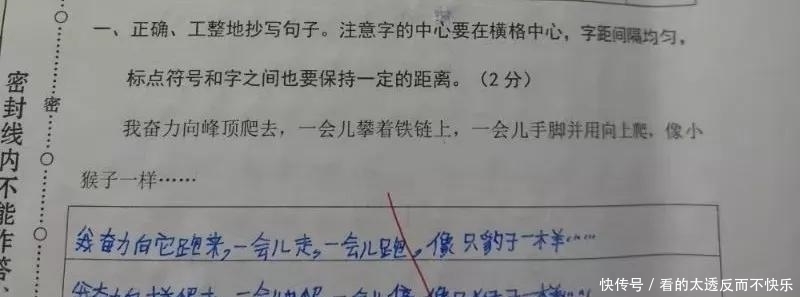 一、正确、工整地抄写句子。注意字的中心要在横格中心，字距间隔均匀，
标点符号和字之间也要保持一定的距离。（2分）
我奋力向峰顶爬去，一会儿攀着铁链上，一会儿手脚并用向上爬，像小
猴子一样……
我奋力向它跑来，一会儿走，一会儿跑，像只豹子一样……
密封线内不能作答
密
快传号／看的太透反而不快乐